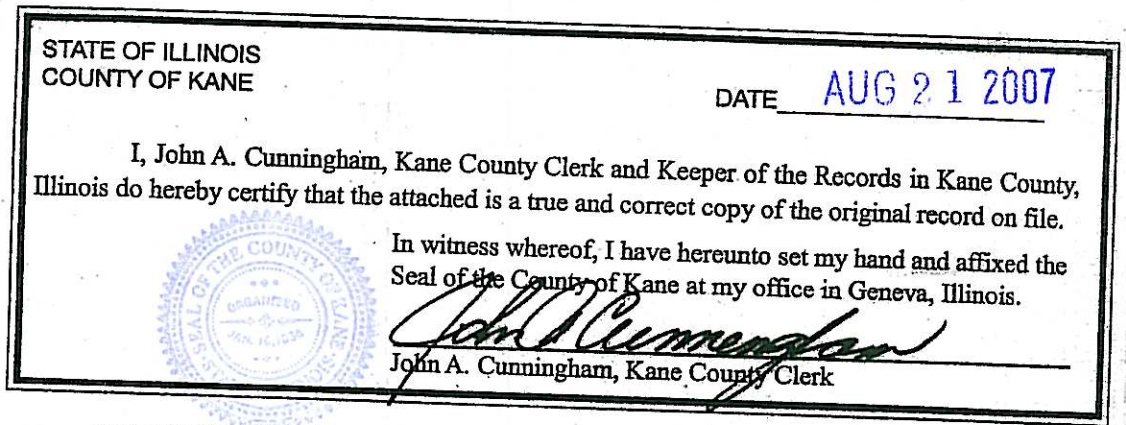 STATE OF ILLINOIS
COUNTY OF KANE
DATE AUG 21 2007
I, John A. Cunningham, Kane County Clerk and Keeper of the Records in Kane County,
Illinois do hereby certify that the attached is a true and correct copy of the original record on file.
In witness whereof, I have hereunto set my hand and affixed the
Seal of the County of Kane at my office in Geneva, Illinois.
John A Cunningham
John A. Cunningham, Kane County Clerk
SEAL OF THE COUNTY OF KANE
ORGANIZED
JAN. 16, 1836